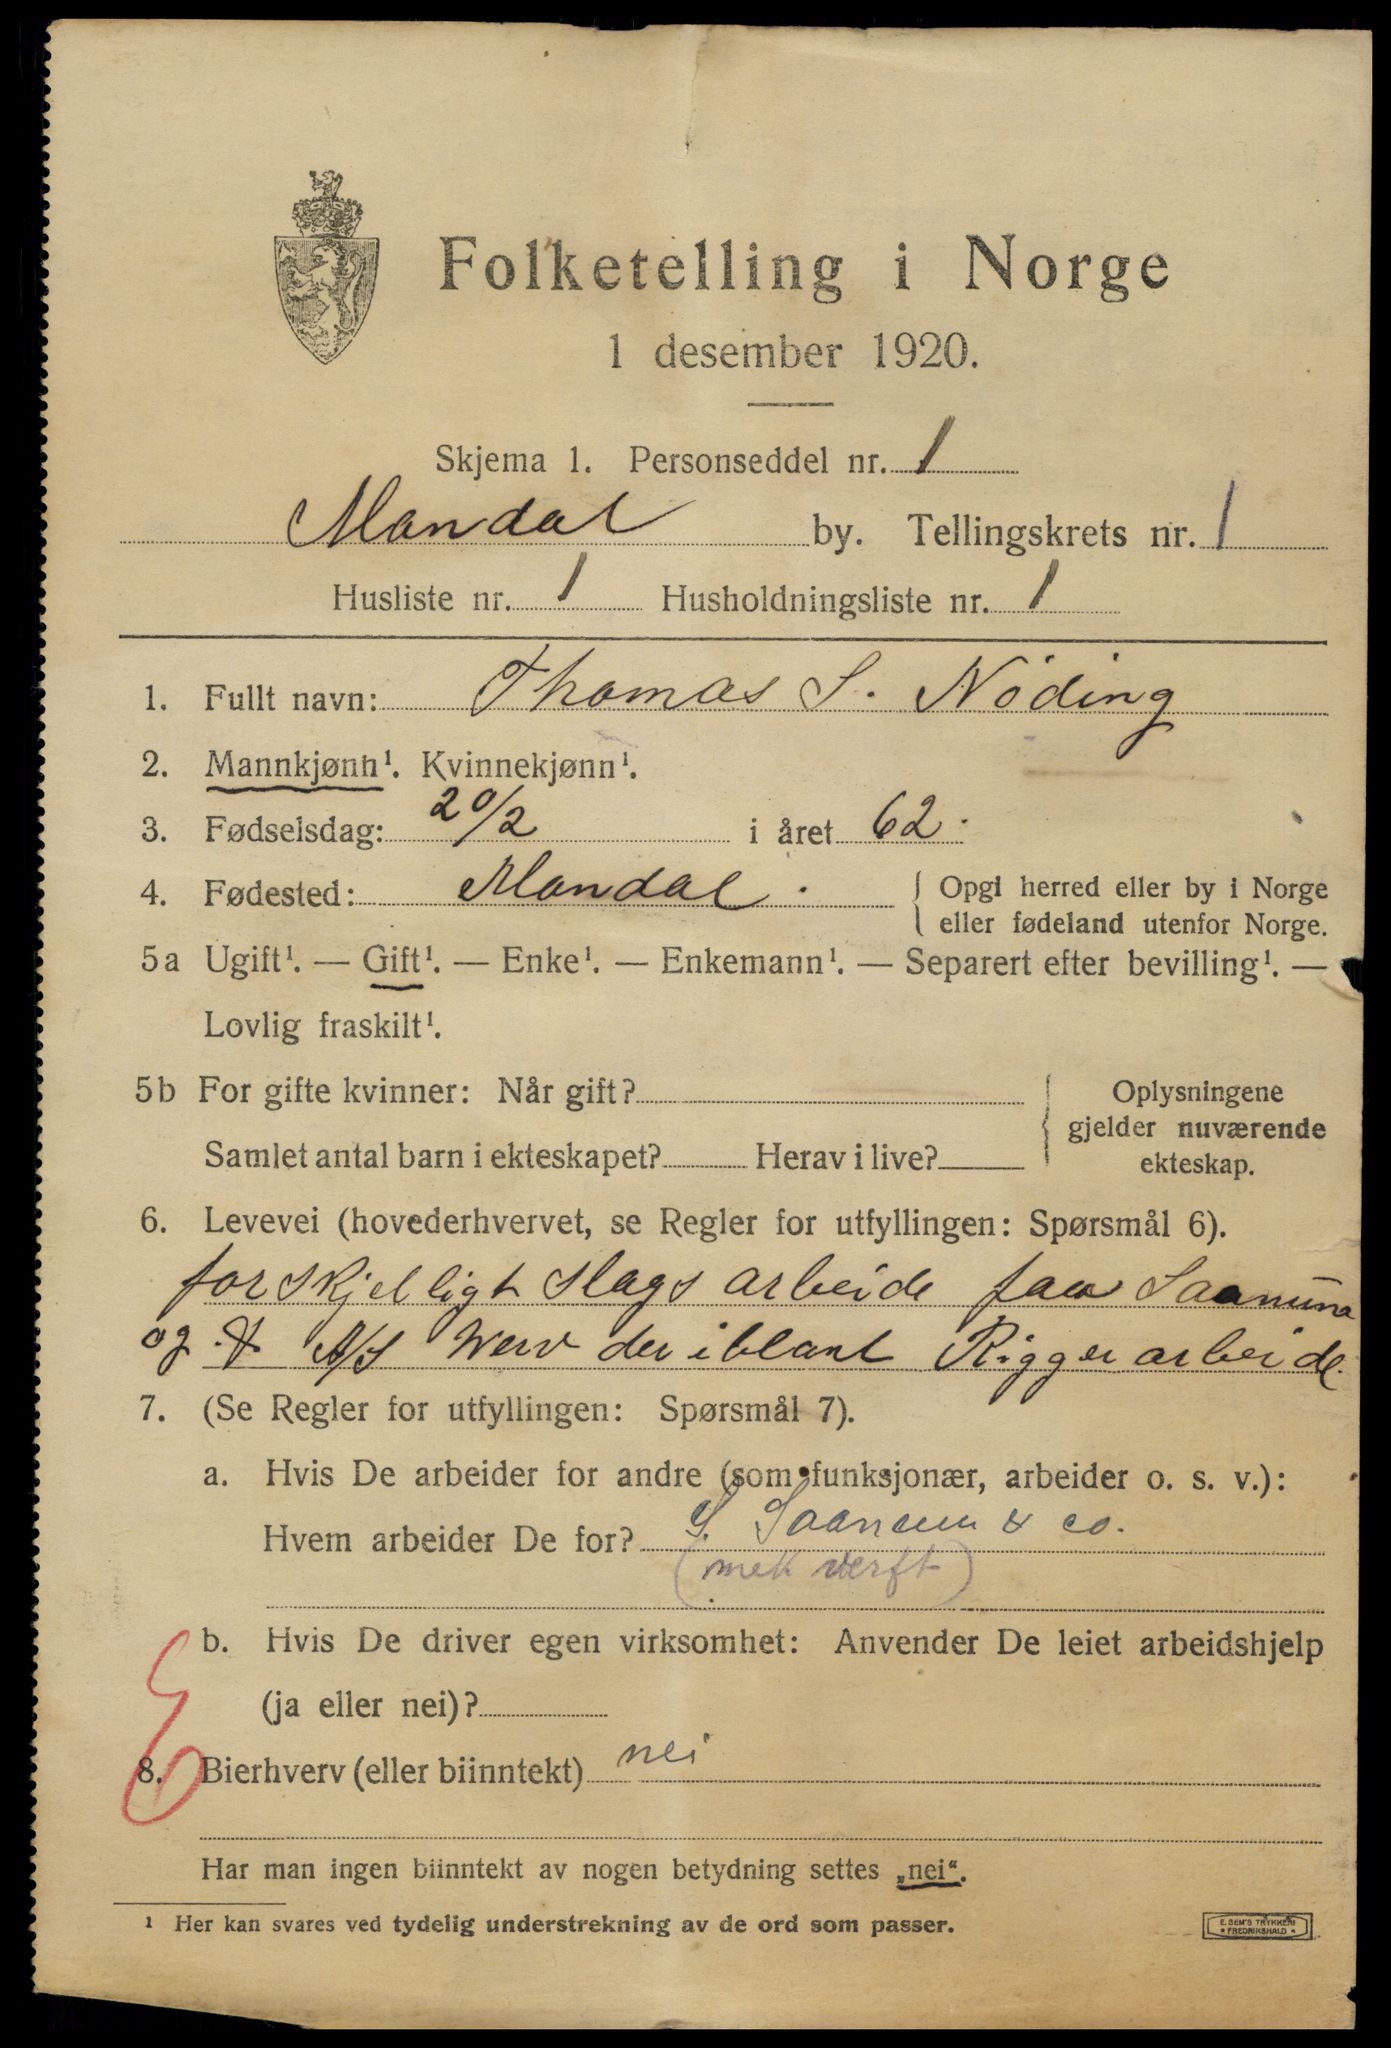 Folketelling i Norge
1 desember 1920.
Skjema 1. Personseddel nr. 1
Mandal by. Tellingskrets nr. 1
Husliste nr. 1 Husholdningsliste nr. 1
1. Fullt navn: Thomas S. Nöding
2. Mannkjønn¹. Kvinnekjønn¹.
3. Fødselsdag: 20/2 i året 62.
4. Fødested: Mandal. { Opgi herred eller by i Norge
eller fødeland utenfor Norge.
5a Ugift¹. — Gift¹. — Enke¹. — Enkemann¹. — Separert efter bevilling¹. —
Lovlig fraskilt¹.
5b For gifte kvinner: Når gift? { Oplysningene
gjelder nuværende
Samlet antal barn i ekteskapet? Herav i live? ekteskap.
6. Levevei (hovederhvervet, se Regler for utfyllingen: Spørsmål 6).
forskjelligt slags arbeide paa
og A/S Werv der iblant Rigger arbeide.
7. (Se Regler for utfyllingen: Spørsmål 7).
a. Hvis De arbeider for andre (som funksjonær, arbeider o. s. v.):
Hvem arbeider De for? S. Saanum & co.
(mek verft)
b. Hvis De driver egen virksomhet: Anvender De leiet arbeidshjelp
(ja eller nei)?
8. Bierhverv (eller biinntekt) nei
Har man ingen biinntekt av nogen betydning settes „nei“.
1 Her kan svares ved tydelig understrekning av de ord som passer.
E. SEM'S TRYKKERI
* FREDRIKSHALD *